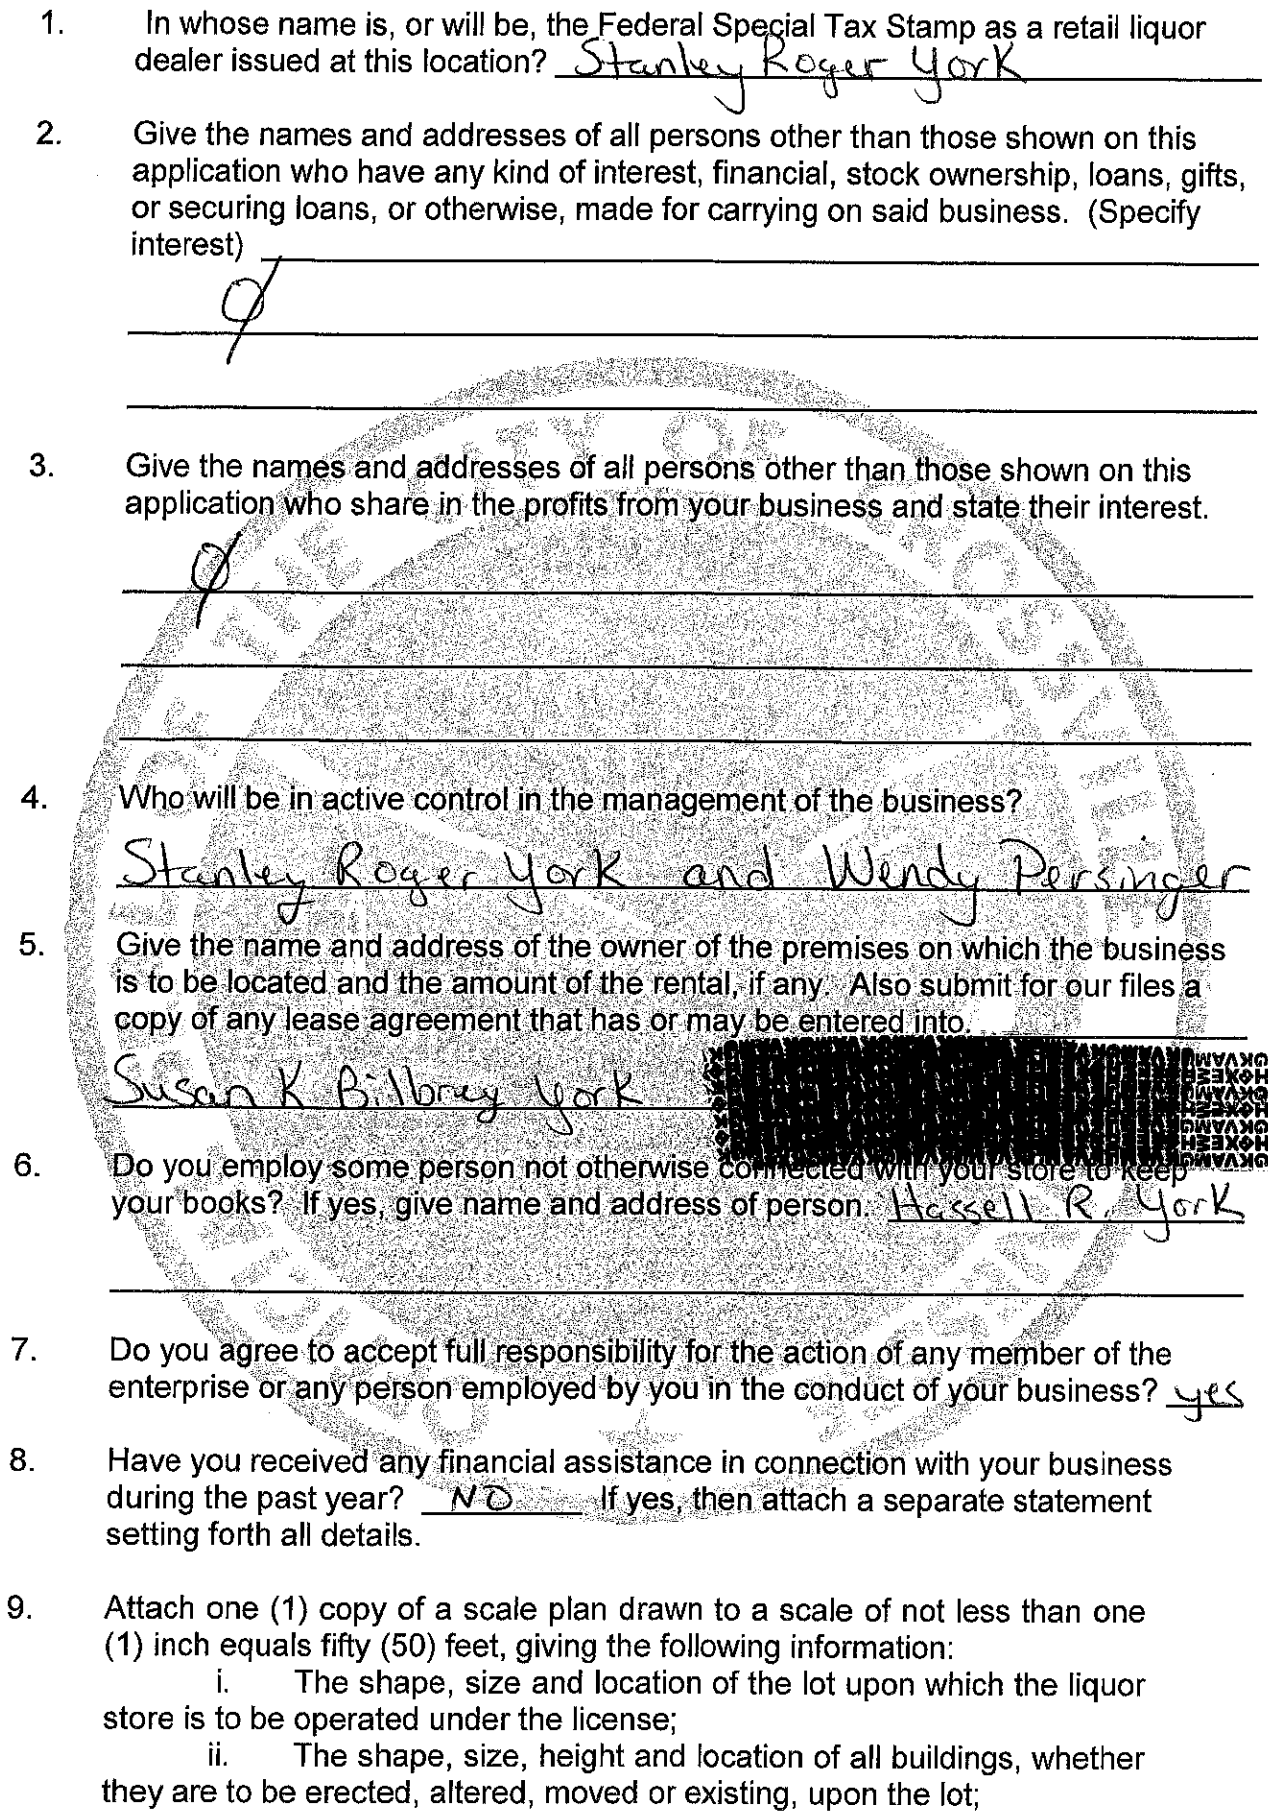 1. In whose name is, or will be, the Federal Special Tax Stamp as a retail liquor
dealer issued at this location? Stanley Roger York
2. Give the names and addresses of all persons other than those shown on this
application who have any kind of interest, financial, stock ownership, loans, gifts,
or securing loans, or otherwise, made for carrying on said business. (Specify
interest)
3. Give the names and addresses of all persons other than those shown on this
application who share in the profits from your business and state their interest.
4. Who will be in active control in the management of the business?
Stanley Roger York and Wendy Persinger
5. Give the name and address of the owner of the premises on which the business
is to be located and the amount of the rental, if any. Also submit for our files a
copy of any lease agreement that has or may be entered into.
Susan K Bilbrey York
6. Do you employ some person not otherwise connected with your store to keep
your books? If yes, give name and address of person. Hassell R. York
7. Do you agree to accept full responsibility for the action of any member of the
enterprise or any person employed by you in the conduct of your business? yes
8. Have you received any financial assistance in connection with your business
during the past year? NO If yes, then attach a separate statement
setting forth all details.
9. Attach one (1) copy of a scale plan drawn to a scale of not less than one
(1) inch equals fifty (50) feet, giving the following information:
i. The shape, size and location of the lot upon which the liquor
store is to be operated under the license;
ii. The shape, size, height and location of all buildings, whether
they are to be erected, altered, moved or existing, upon the lot;